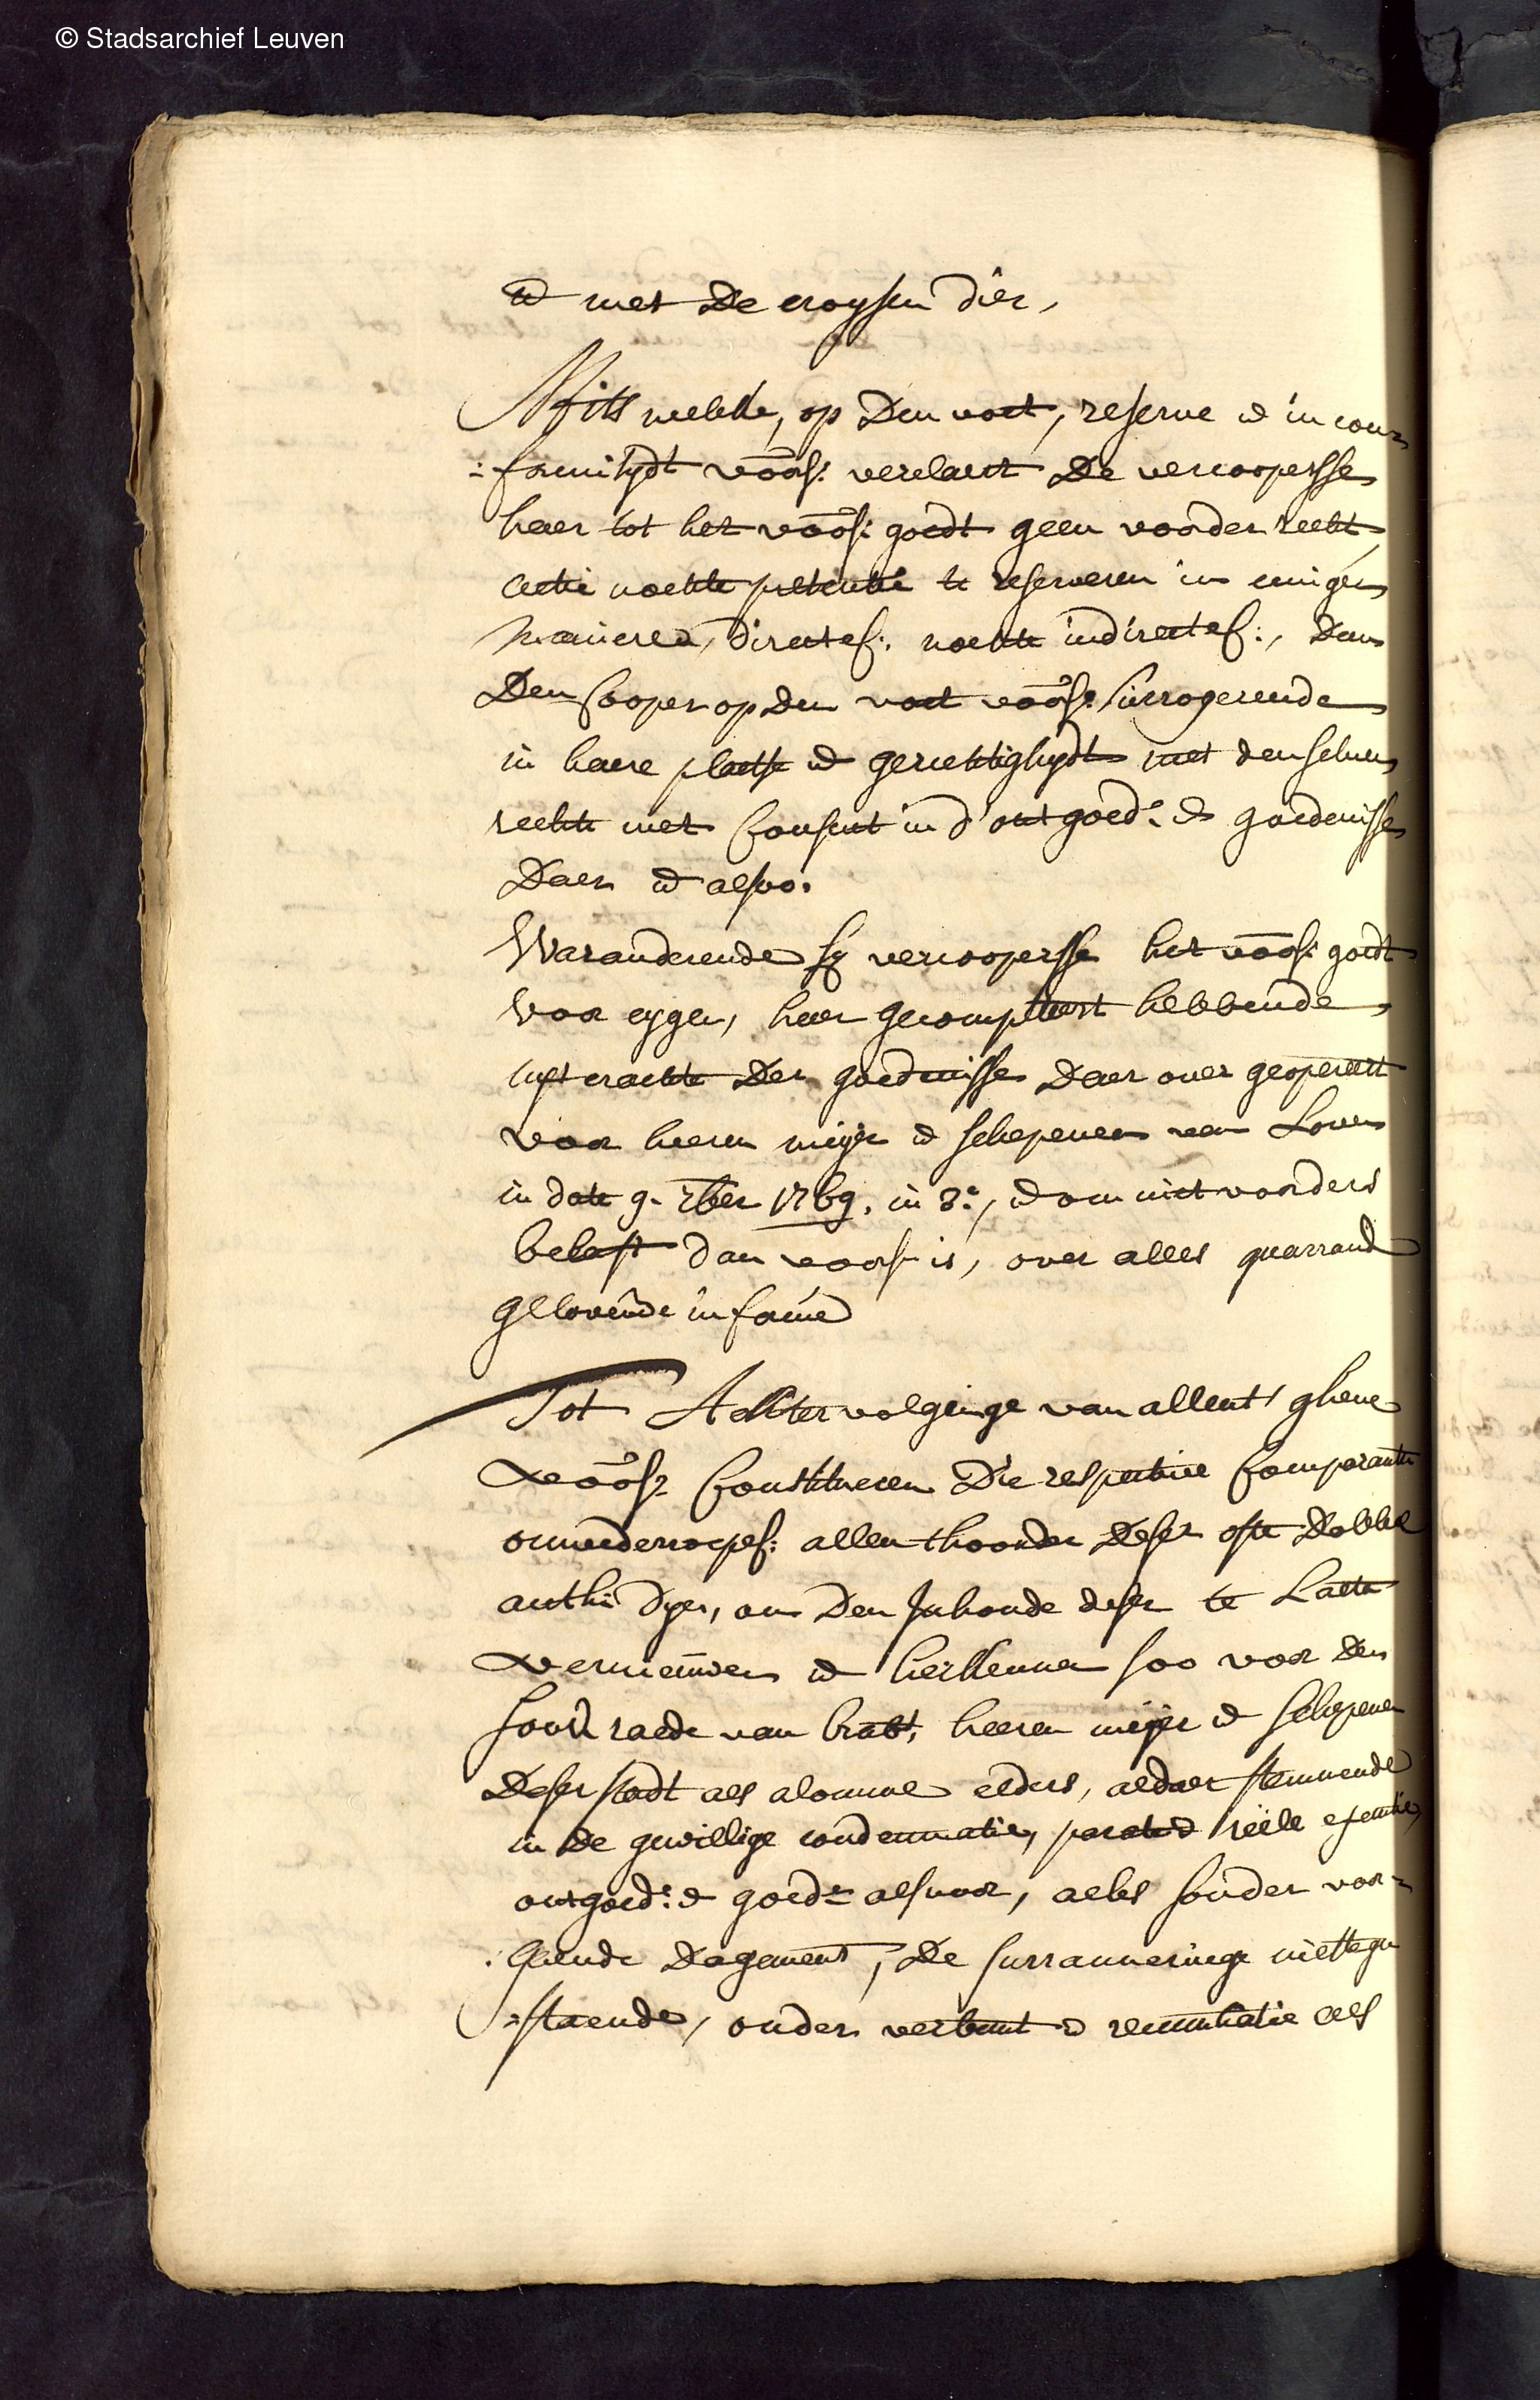 © Stadsarchief Leuven
et met de croysen dier,
Mits welcke, op den voet, reserve et in con=
=formityt voors: verclaert de vercooperse
haer tot het voors: goedt geen voorder recht,
actie nochte pretentie te reserveren in eenige
manieren, directel: nochte indirectel:, dan
den cooper op den voet voors: surrogerende
in haere plaetse et gerechtighydt met den selven
rechte met consent in d'ontgoed: et goedenisse
daer et alsvo.
Waranderende sy vercooperse het voors: goedt
voor eygen, haer gecompteert hebbende,
uyt crachte der goedenisse daer over geopereert
voor heeren meyer et schepenen van Loven
in date 9. 7ber 1769. in 3e, et om niet voorders
belast dan voors is, over alles guarrand
gelovende in forme
Tot Achtervolginge van allent' ghene
voors: constitueren die respective comparanten
onwederroepel: allen thoonder deser ofte dobbel
auth: dyer, om den Inhoude deser te laeten
vernieuwen et herkennen soo voor den
souv: raede van brabt, heeren meyer et schepenen
deser stadt als alomme elders, aldaer stemmende
in de gewillige condemnatie, parate et réële executie,
ontgoed: et goed: alsvoor, alles sonder voor=
:gaende dagement, de surranneringe niettegen
=staende, onder verbant et renuntiatie als